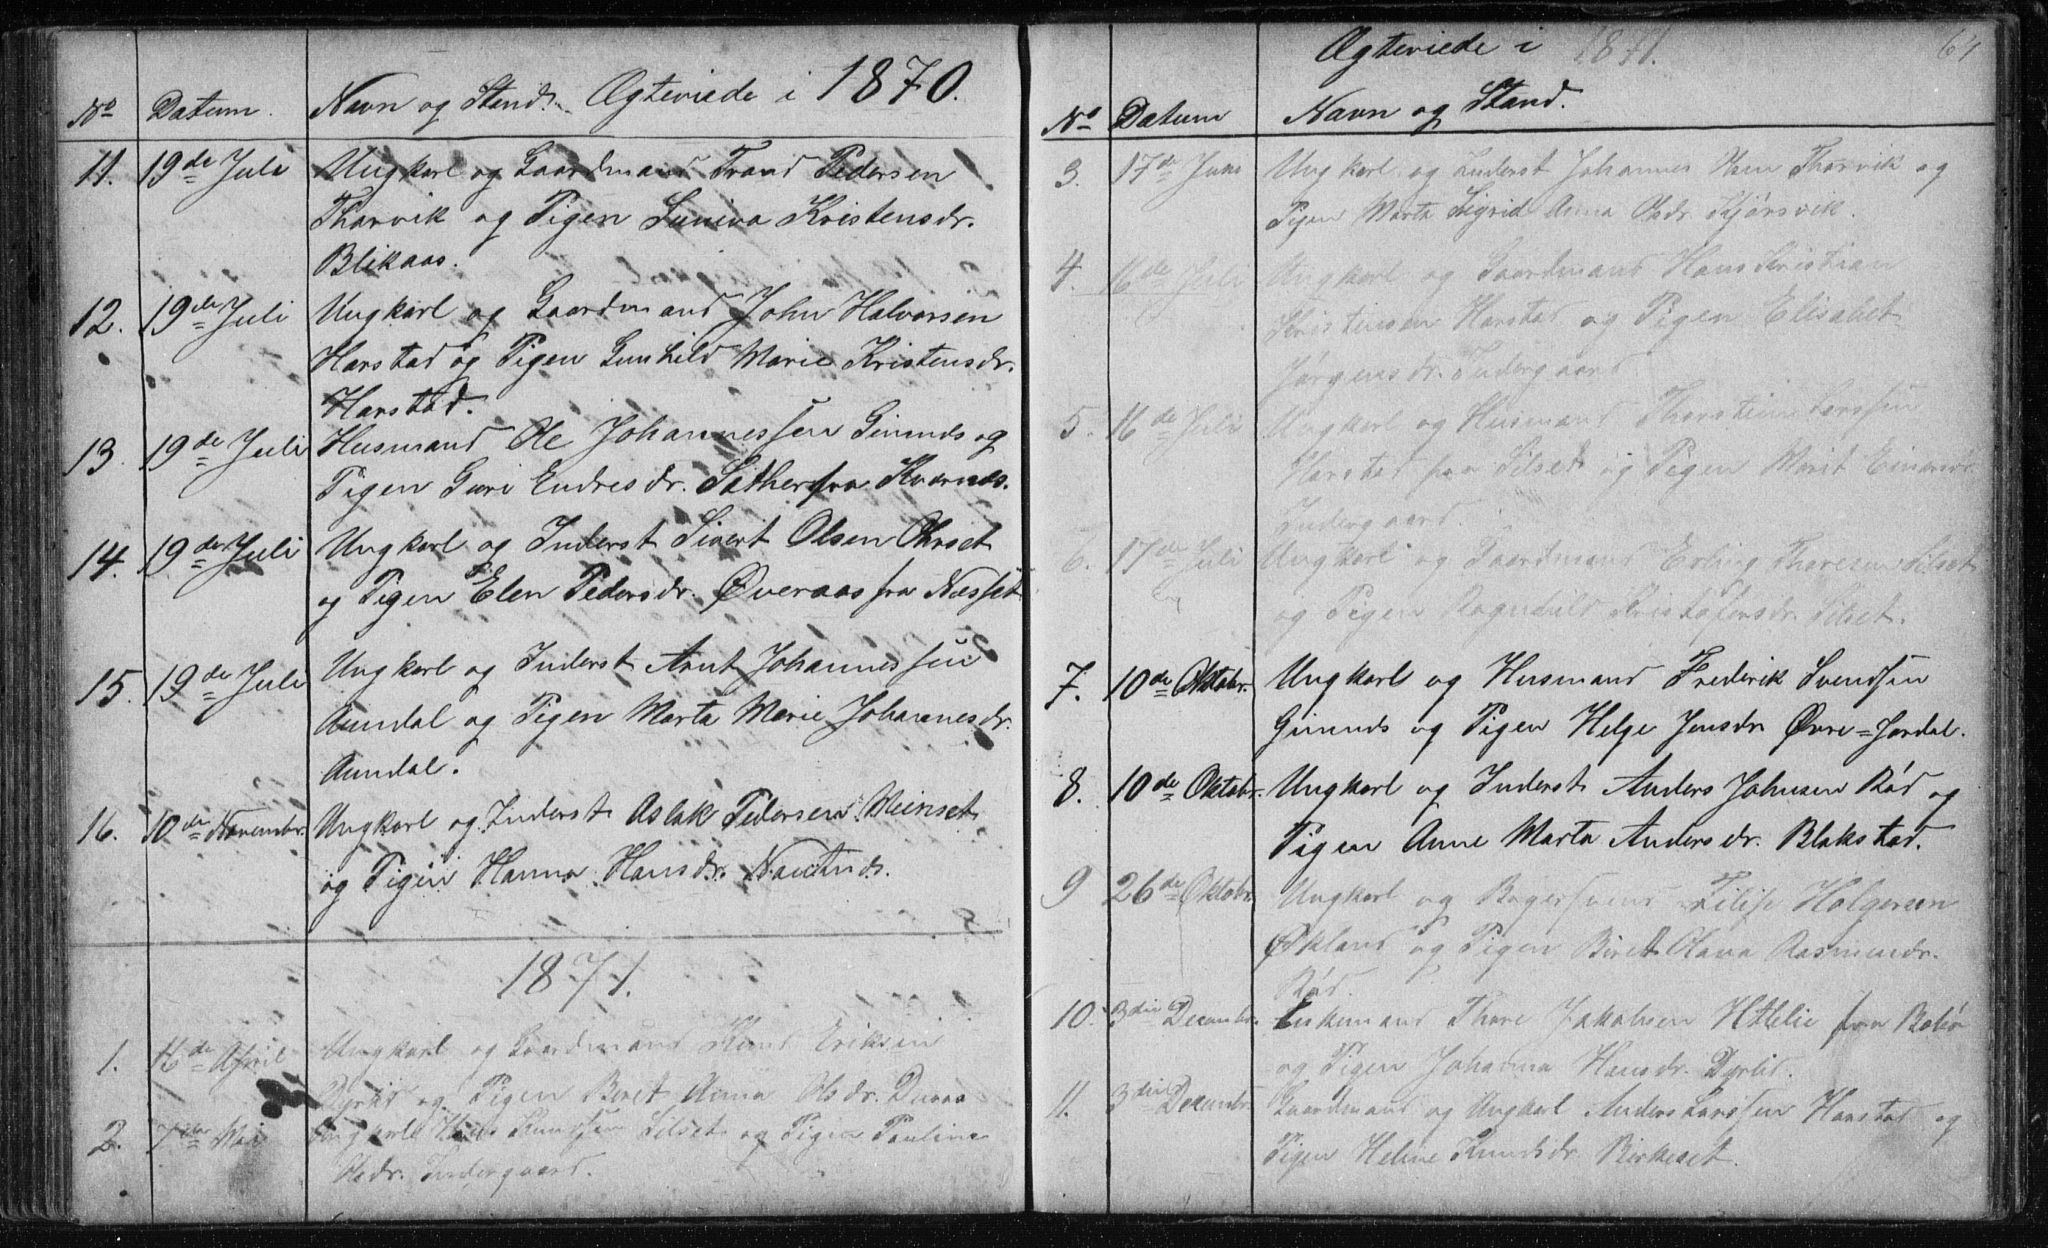 No Datum. Navn og Stand. Ægteviede i 1870.
11. 19de Juli Ungkarl og Gaardmand Trond Pedersen
Thorvik og Pigen Suniva Kristensdr.
Blikaas.
12. 19de Juli Ungkarl og Gaardmand John Halvorsen
Harstad og Pigen Gunhild Marie Kristensdr.
Harstad.
13. 19de Juli Husmand Ole Johannessen Gimnds og
Pigen Guri Endresdr. Sather fra Kvernes.
14. 19de Juli Ungkarl og Inderst Sivert Olsen
og Pigen Elen Pedersdr. Øveraas fra Næsset
15. 19de Juli Ungkarl og Inderst Arnt Johannessen
Aundal og Pigen Marta Marie Johannesdr.
Aundal.
16. 10de Novembr. Ungkarl og Inderst Aslak Pedersen Meinset
og Pigen Hanna Hansdr.
1871.
1. 16de April Ungkarl og Gaardmand Knud Eriksen
Dyrlid og Pigen Beret Anna Olsdr.
2. 7de Mai Ungkarl Hans Knudsen Silset og Pigen Pauline
Olsdr. Indergaard.
Ægteviede i 1871. 61
No Datum Navn og Stand.
3. 17de Ungkarl og Inderst Johannes Thorvik og
Pigen Marta Sigrid Anna Olsdr. Kjørsvik.
4. 16de Juli Ungkarl og Gaardmand Hans Kristian
Kristensen Harstad og Pigen Elisabet
Jørgensdr. Indergaard.
5. 16de Juli Ungkarl og Husmand Thorstein Larssen
Harstad paa Silset og Pigen Marit Einarsdr.
Indergaard
6. 17de Juli Ungkarl og Gaardmand Erling Thoresen Silset
og Pigen Ragnhild Kristofersdr. Silset.
7. 10de Oktobr. Ungkarl og Husmand Frederik Svendsen
Gimnds og Pigen Helge Jensdr. Øvre=Jordal.
8. 10de Oktobr. Ungkarl og Inderst Anders Johnsen Rød og
Pigen Anne Marta Andersdr. Blakstad.
9 26de Oktobr. Ungkarl og Bagersvend Holgersen
Økland og Pigen Beret Olava Rasmusdr.
Rød.
10. 3die Decembr. Enkemand Thore Jakobsen fra Bolsø
og Pigen Johanna Hansdr. Dyrlid.
11. 3die Decembr. Gaardmand og Ungkarl Anders Larssen Harstad og
Pigen Heline Knudsdr. Birkeset.